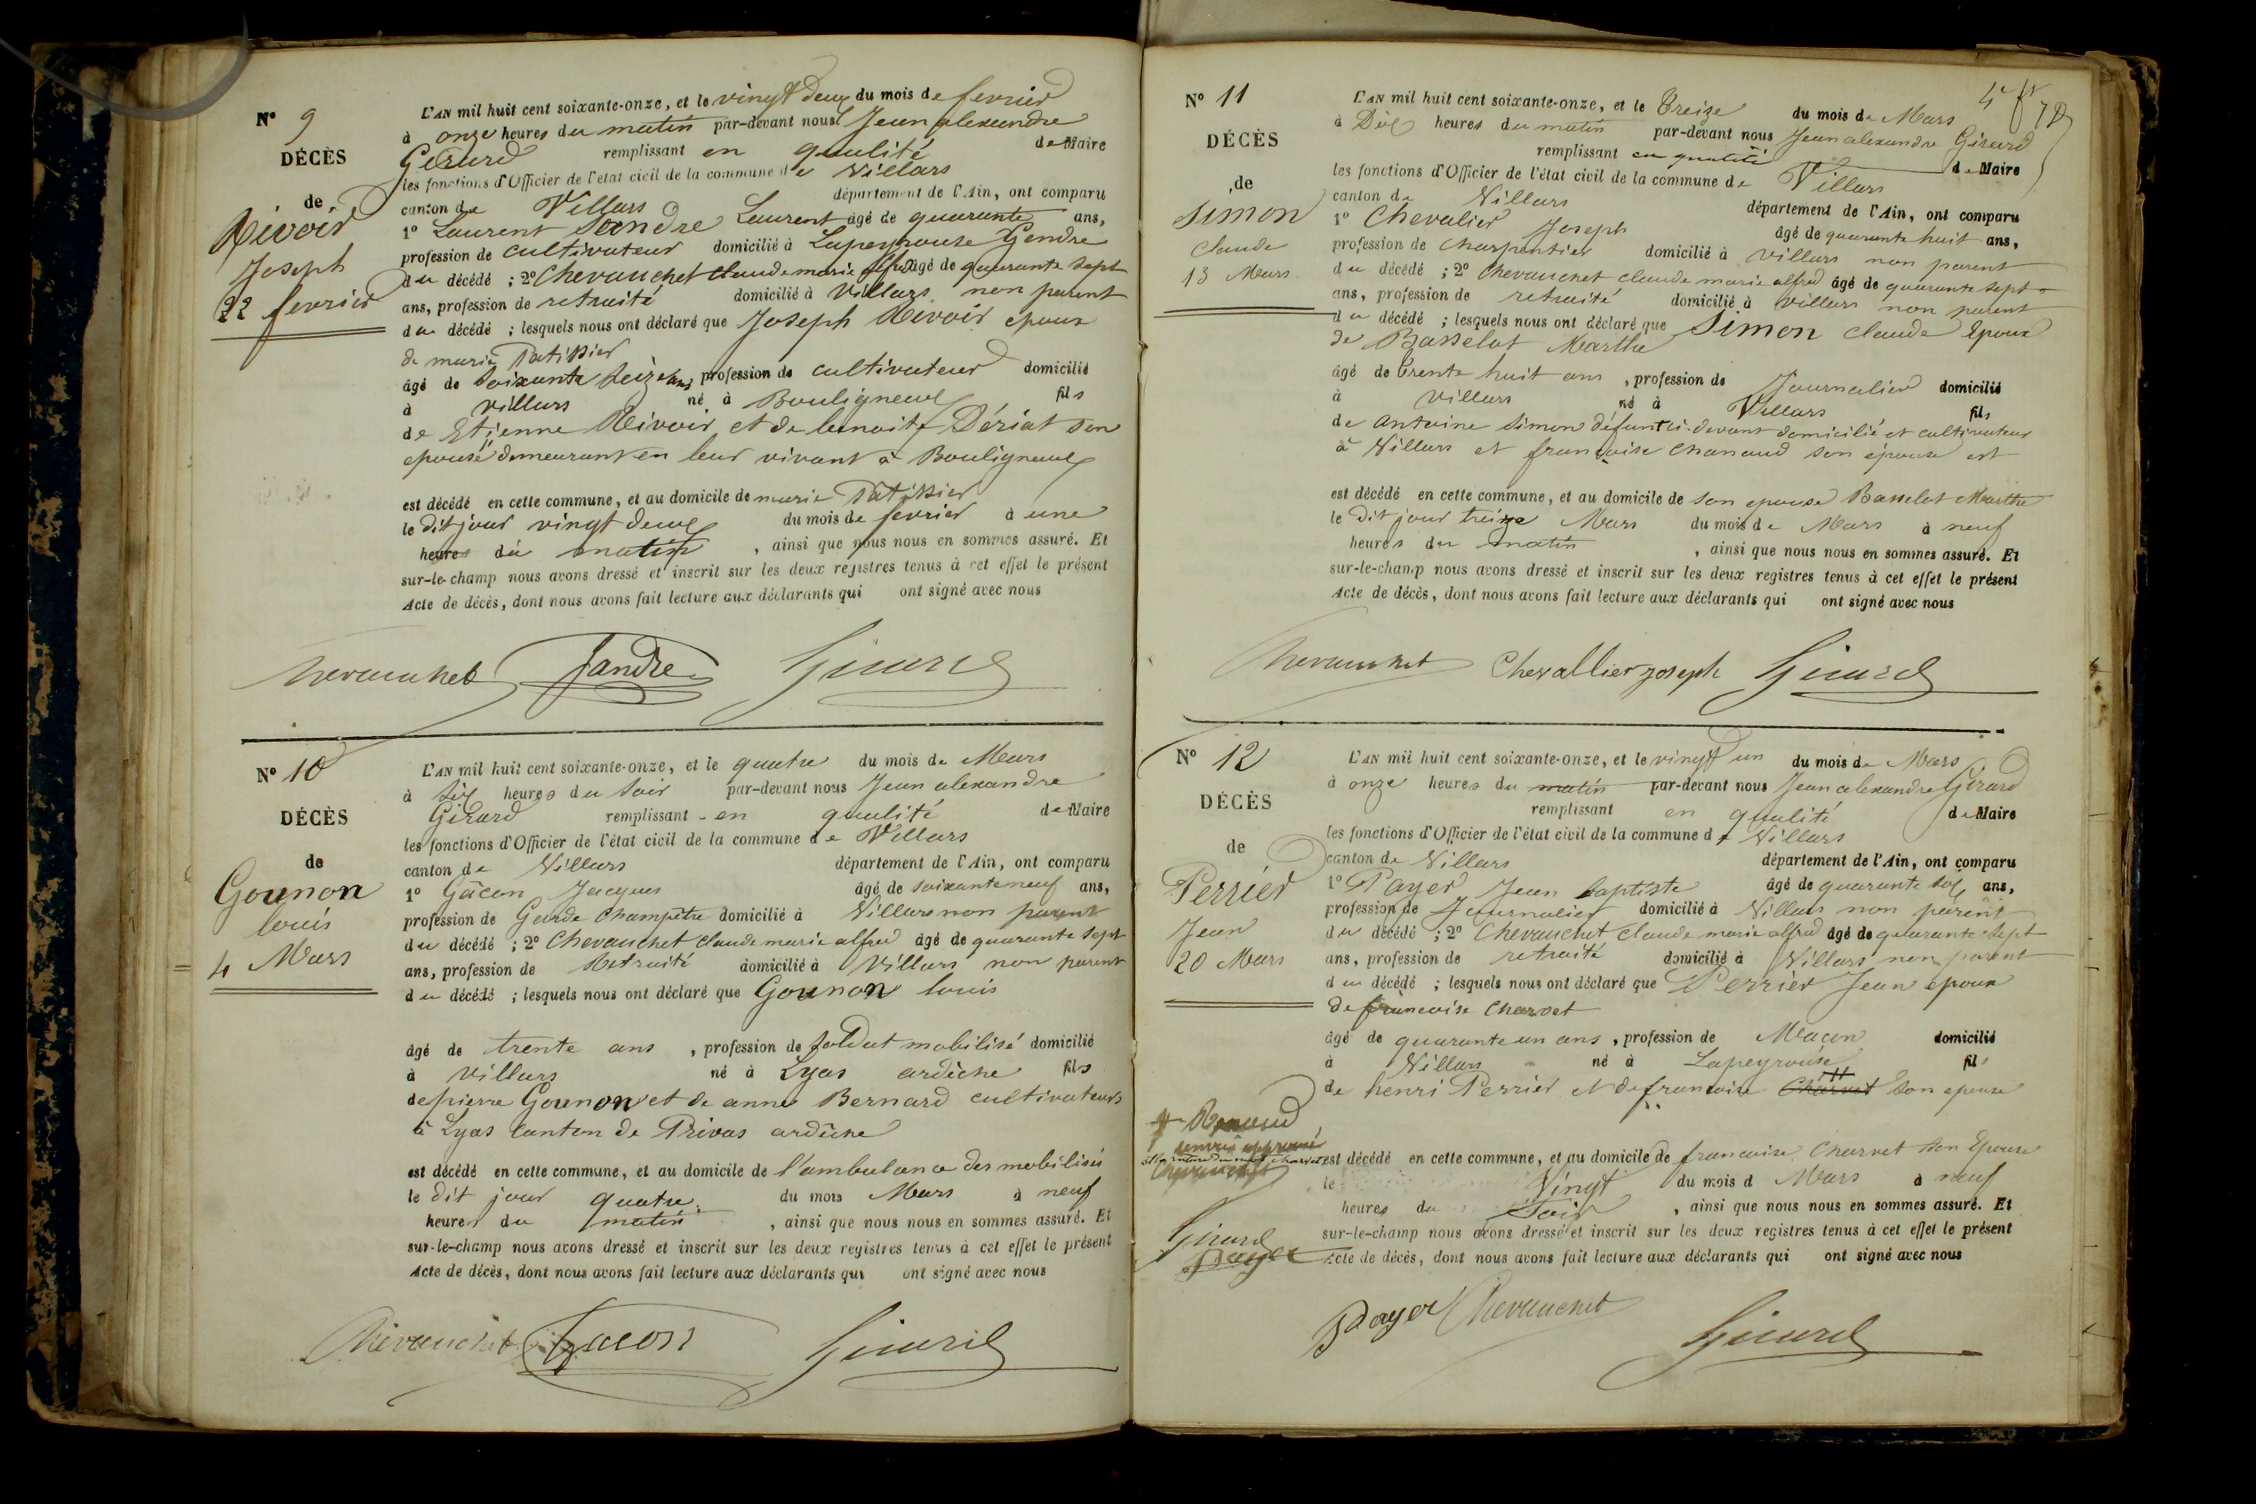 N° 9
DÉCÈS
de
Rivoir
Joseph
22 fevrier
L'AN mil huit cent soixante-onze, et le vingt deux du mois de fevrier
à onze heures du matin par-devant nous Jean alexandre
Girard remplissant en qualité de Maire
les fonctions d'Officier de l'état civil de la commune de Villars
canton de Villars département de l'Ain, ont comparu
1° Laurent Sandre Laurent âgé de quarante ans,
profession de cultivateur domicilié à Lapeyrouse Gendre
du décédé ; 2° Chevauchet Claude marie alfred âgé de quarante sept
ans, profession de retraité domicilié à Villars non parent
du décédé ; lesquels nous ont déclaré que Joseph Rivoir epoux
de marie Patissier
âgé de soixante seize ans, profession de cultivateur domicilié
à Villars né à Bouligneux fils
de Etienne Rivoir et de benoite Dériat son
epouse demeurant en leur vivant à Bouligneux
est décédé en cette commune, et au domicile de marie Patissier
le dit jour vingt deux du mois de fevrier à une
heures du matin, ainsi que nous nous en sommes assuré. Et
sur-le-champ nous avons dressé et inscrit sur les deux registres tenus à cet effet le présent
Acte de décès, dont nous avons fait lecture aux déclarants qui ont signé avec nous
Chevauchet Sandre Girard
N° 10
DÉCÈS
de
Gounon
louis
4 Mars
L'AN mil huit cent soixante-onze, et le quatre du mois de Mars
à six heures du soir par-devant nous Jean alexandre
Girard remplissant en qualité de Maire
les fonctions d'Officier de l'état civil de la commune de Villars
canton de Villars département de l'Ain, ont comparu
1° Gacon Jacques âgé de soixante neuf ans,
profession de Garde Champêtre domicilié à Villars non parent
du décédé ; 2° Chevauchet Claude marie alfred âgé de quarante sept
ans, profession de Retraité domicilié à Villars non parent
du décédé ; lesquels nous ont déclaré que Gounon louis
âgé de trente ans, profession de soldat mobilisé domicilié
à Villars né à Lyas ardèche fils
de pierre Gounon et de anne Bernard cultivateurs
à Lyas Canton de Privas ardèche
est décédé en cette commune, et au domicile de l'ambulance des mobilisés
le dit jour quatre du mois Mars à neuf
heures du matin, ainsi que nous nous en sommes assuré. Et
sur-le-champ nous avons dressé et inscrit sur les deux registres tenus à cet effet le présent
Acte de décès, dont nous avons fait lecture aux déclarants qui ont signé avec nous
Chevauchet Gacon Girard
N° 11
DÉCÈS
de
Simon
Claude
13 Mars
L'AN mil huit cent soixante-onze, et le treize du mois de Mars
à Dix heures du matin par-devant nous Jean alexandre Girard
remplissant en qualité de Maire
les fonctions d'Officier de l'état civil de la commune de Villars
canton de Villars département de l'Ain, ont comparu
1° Chevalier Joseph âgé de quarante huit ans,
profession de charpentier domicilié à Villars non parent
du décédé ; 2° Chevauchet claude marie alfred âgé de quarante sept
ans, profession de retraité domicilié à Villars non parent
du décédé ; lesquels nous ont déclaré que Simon claude Epoux
de Basselot Marthe
âgé de trente huit ans, profession de Journalier domicilié
à Villars né à Villars fils
de antoine simon défunt ci-devant domicilié et cultivateur
à Villars et françoise Chanaud son épouse est
est décédé en cette commune, et au domicile de son epouse Basselot Marthe
le dit jour treize Mars du mois de Mars à neuf
heures du matin, ainsi que nous nous en sommes assuré. Et
sur-le-champ nous avons dressé et inscrit sur les deux registres tenus à cet effet le présent
Acte de décès, dont nous avons fait lecture aux déclarants qui ont signé avec nous
Chevauchet Chevallier joseph Girard
N° 12
DÉCÈS
de
Perrier
Jean
20 Mars
L'AN mil huit cent soixante-onze, et le vingt un du mois de Mars
à onze heures du matin par-devant nous Jean alexandre Girard
remplissant en qualité de Maire
les fonctions d'Officier de l'état civil de la commune de Villars
canton de Villars département de l'Ain, ont comparu
1° Payer Jean baptiste âgé de quarante six ans,
profession de Journalier domicilié à Villars non parent
du décédé ; 2° Chevauchet Claude marie alfred âgé de quarante sept
ans, profession de retraité domicilié à Villars non parent
du décédé ; lesquels nous ont déclaré que Perrier Jean époux
de françoise Charvet
âgé de quarante un ans, profession de Maçon domicilié
à Villars né à Lapeyrouse fils
de henri Perrier et de françoise Charvet son epouse
est décédé en cette commune, et au domicile de françoise Charvet son Epouse
le Vingt du mois d Mars à neuf
heures du Soir, ainsi que nous nous en sommes assuré. Et
sur-le-champ nous avons dressé et inscrit sur les deux registres tenus à cet effet le présent
Acte de décès, dont nous avons fait lecture aux déclarants qui ont signé avec nous
renvoi approuvé
Chevauchet
Girard
Payer
Payer Chevauchet
Girard